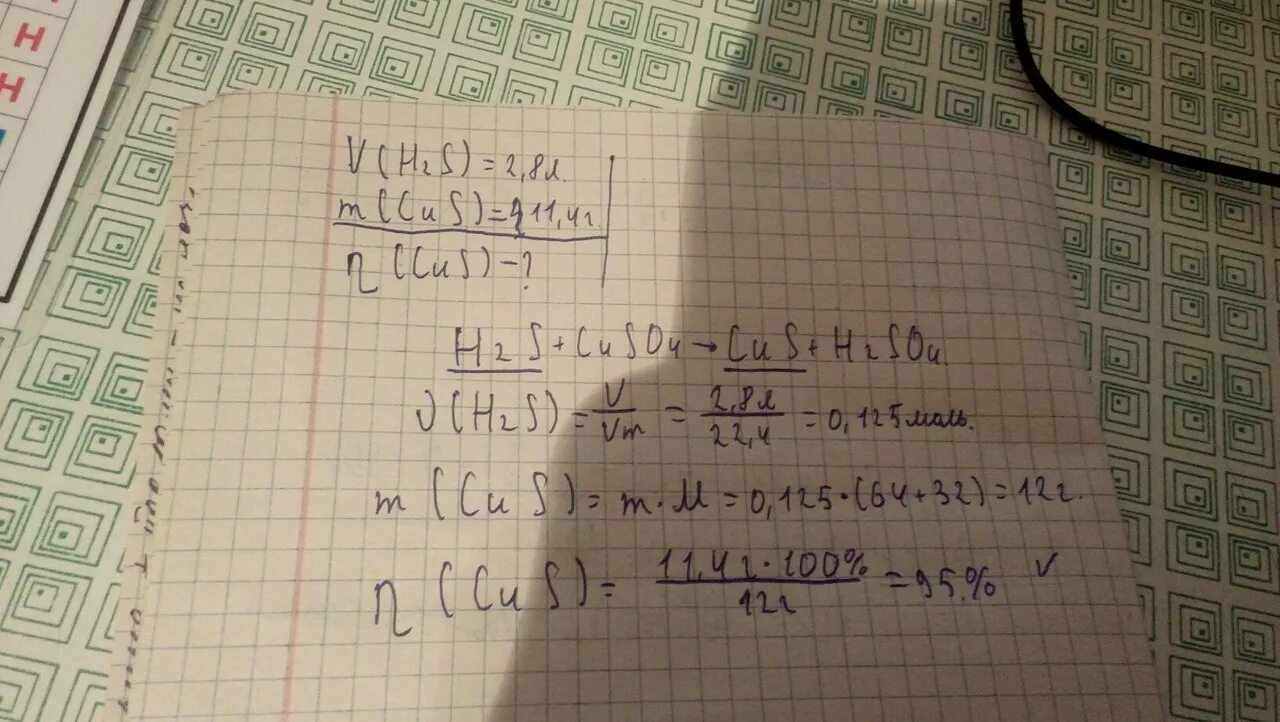 Н
Н
V(H2S)=2,8л.
m(CuS)=11,4г
η(CuS)-?
H2S+CuSO4→CuS+H2SO4.
ν(H2S)=V/Vm=2,8л/22,4=0,125моль.
m(CuS)=m·M=0,125·(64+32)=12г.
η(CuS)=11,4г·100%/12г=95%